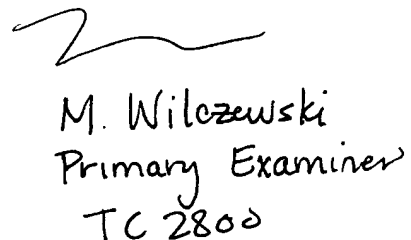 M. Wilczewski
Primary Examiner
TC 2800